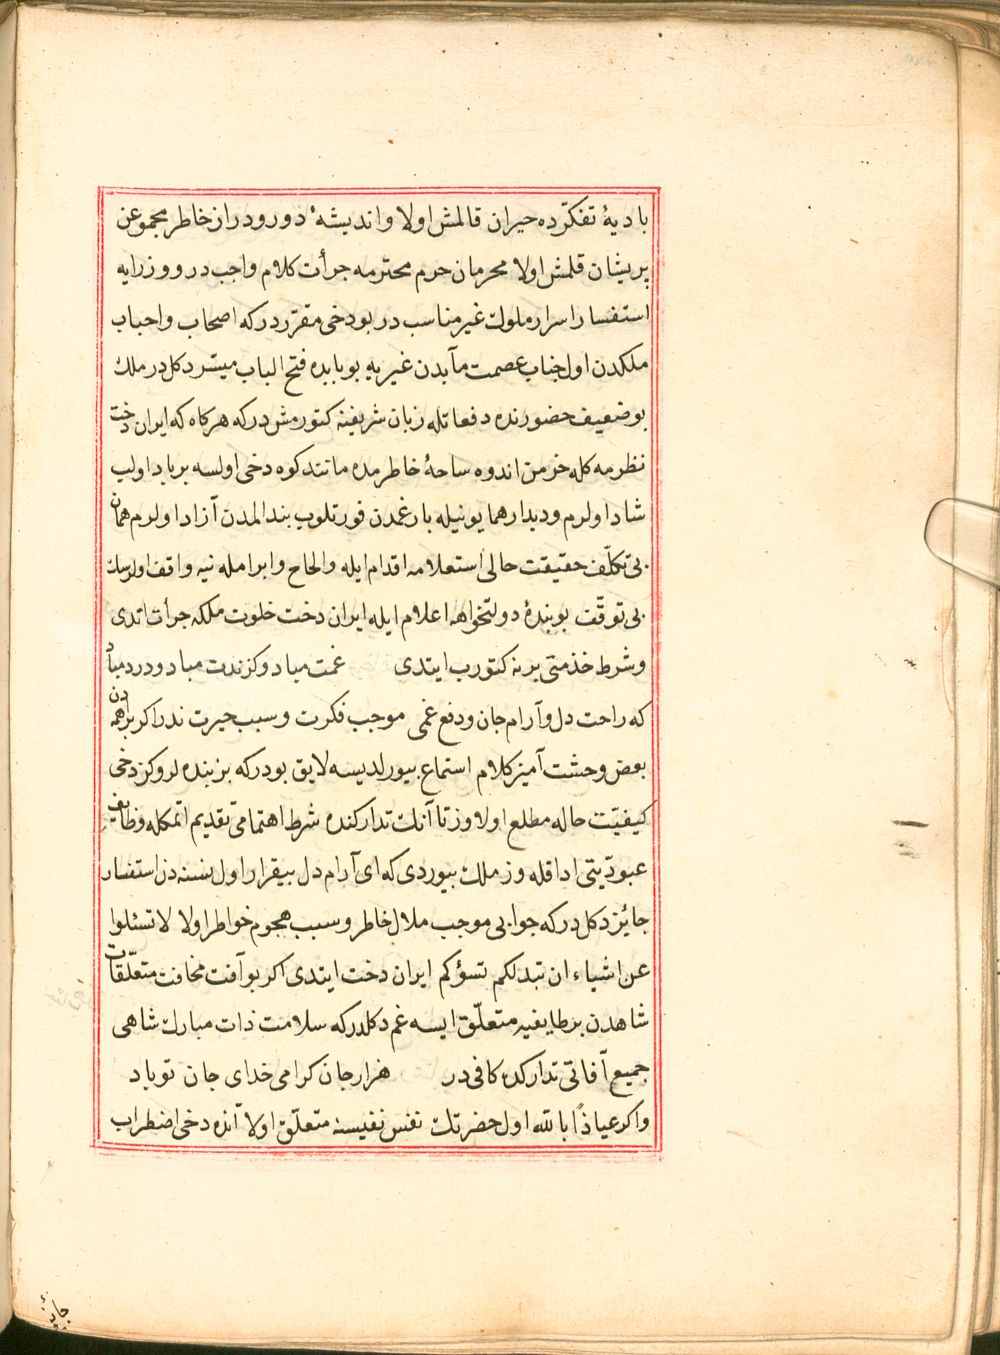 بادیهٔ تفکّرده حیران قالمش اولا و اندیشهٔ دور و دراز خاطر مجموعن
پریشان قلمش اولا محرمان حرم محترمه جرأت کلام واجب در و وزرایه
استفسار اسرار ملوک غیر مناسب در بو دخی مقرّر در که اصحاب و احباب
ملکدن اول جناب عصمت مآبدن غیریه بو بابده فتح الباب میسّر دکل در ملک
بو ضعیف حضورنده دفعاتله زبان شریفنه کتورمش در که هرکاه که ایران دخت
نظرمه کله خرمن اندوه ساحهٔ خاطرمده مانند کوه دخی اولسه برباد اولب
شاد اولرم و دیدار همایونیله بار غمدن قورتلوب بند المدن آزاد اولرم همان
بی تکلّف حقیقت حالی استعلامه اقدام ایله و الحاح و ابرامله نیه واقف اولرسک
بی توقّف بو بندهٔ دولتخواهه اعلام ایله ایران دخت خلوت ملکه جرأت اتدی
و شرط خذمتی یرنه کتورب ایتدی غمت مباد و کزندت مباد و درد مباد
که راحت دل و آرام جان و دفع غمی موجب فکرت و سبب حیرت ندر اکر براهمه دن
بعض وحشت آمیز کلام استماع بیورلدیسه لایق بودر که بز بنده لروکز دخی
کیفیّت حاله مطلع اولاوز تا آنک تدارکنده شرط اهتمامی تقدیم اتمکله وظایف
عبودیّتی ادا قله وز ملک بیوردی که ای آرام دل بیقرار اول نسنه دن استفسار
جائز دکل در که جوابی موجب ملال خاطر و سبب هجوم خواطر اولا لا تسئلوا
عن اشیاء ان تبد لکم تسؤکم ایران دخت ایتدی اکر بو آفت مخافت متعلّقات
شاهدن بر طایفیه متعلّق ایسه غم دکلدر که سلامت ذات مبارک شاهی
جمیع آفاتی تدارکه کافی در هزار جان کرامی خدای جان تو باد
و اکر عیاذًا بالله اول حضرتک نفس نفیسنه متعلّق اولا آنده دخی اضطراب
جایز